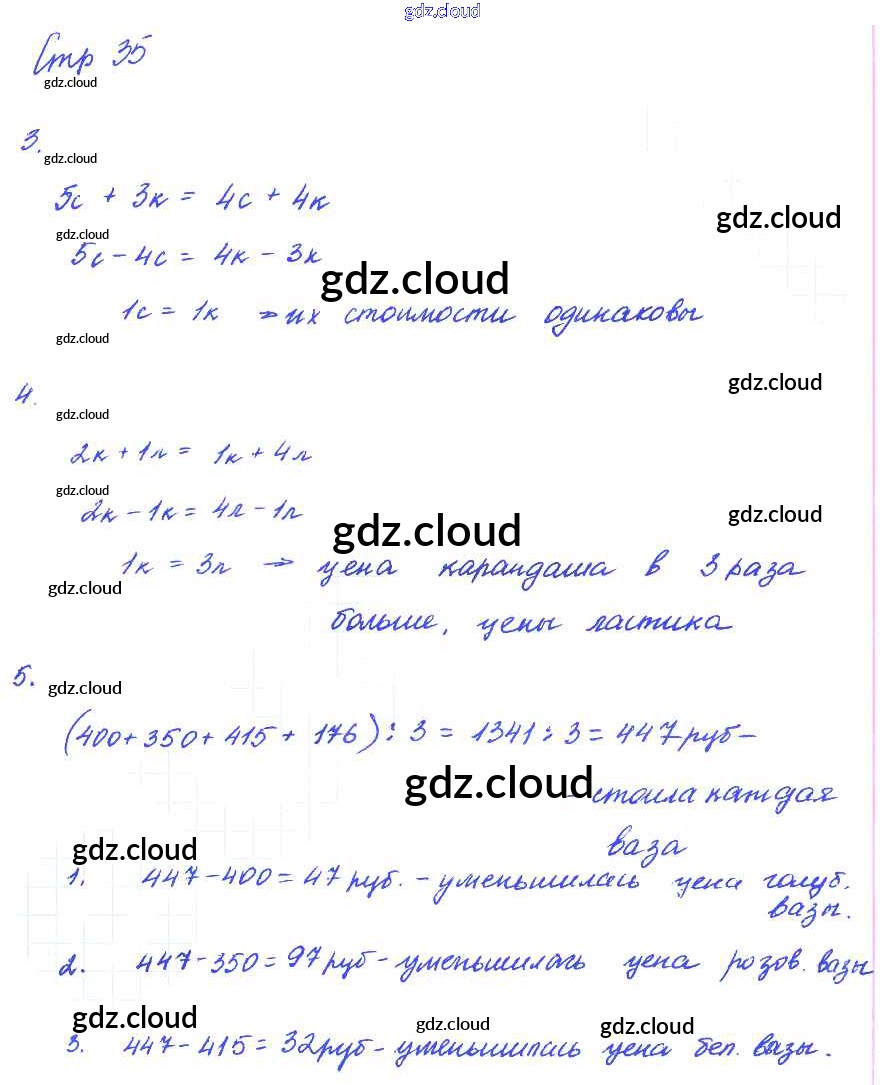 gdz.cloud
Стр 35
gdz.cloud
3.
gdz.cloud
5с + 3к = 4с + 4к
gdz.cloud
gdz.cloud
5с - 4с = 4к - 3к
gdz.cloud
1с = 1к ⇒ их стоимости одинаковы
gdz.cloud
gdz.cloud
4.
gdz.cloud
2к + 1л = 1к + 4л
gdz.cloud
2к - 1к = 4л - 1л
gdz.cloud
gdz.cloud
1к = 3л ⇒ цена карандаша в 3 раза
gdz.cloud
больше, цены ластика
5.
gdz.cloud
(400 + 350 + 415 + 176) : 3 = 1341 : 3 = 447 руб -
gdz.cloud
- стоила каждая
ваза
gdz.cloud
1. 447 - 400 = 47 руб. - уменьшилась цена голуб.
вазы.
2. 447 - 350 = 97 руб - уменьшилась цена розов. вазы
gdz.cloud
gdz.cloud
gdz.cloud
3. 447 - 415 = 32 руб - уменьшилась цена бел. вазы.